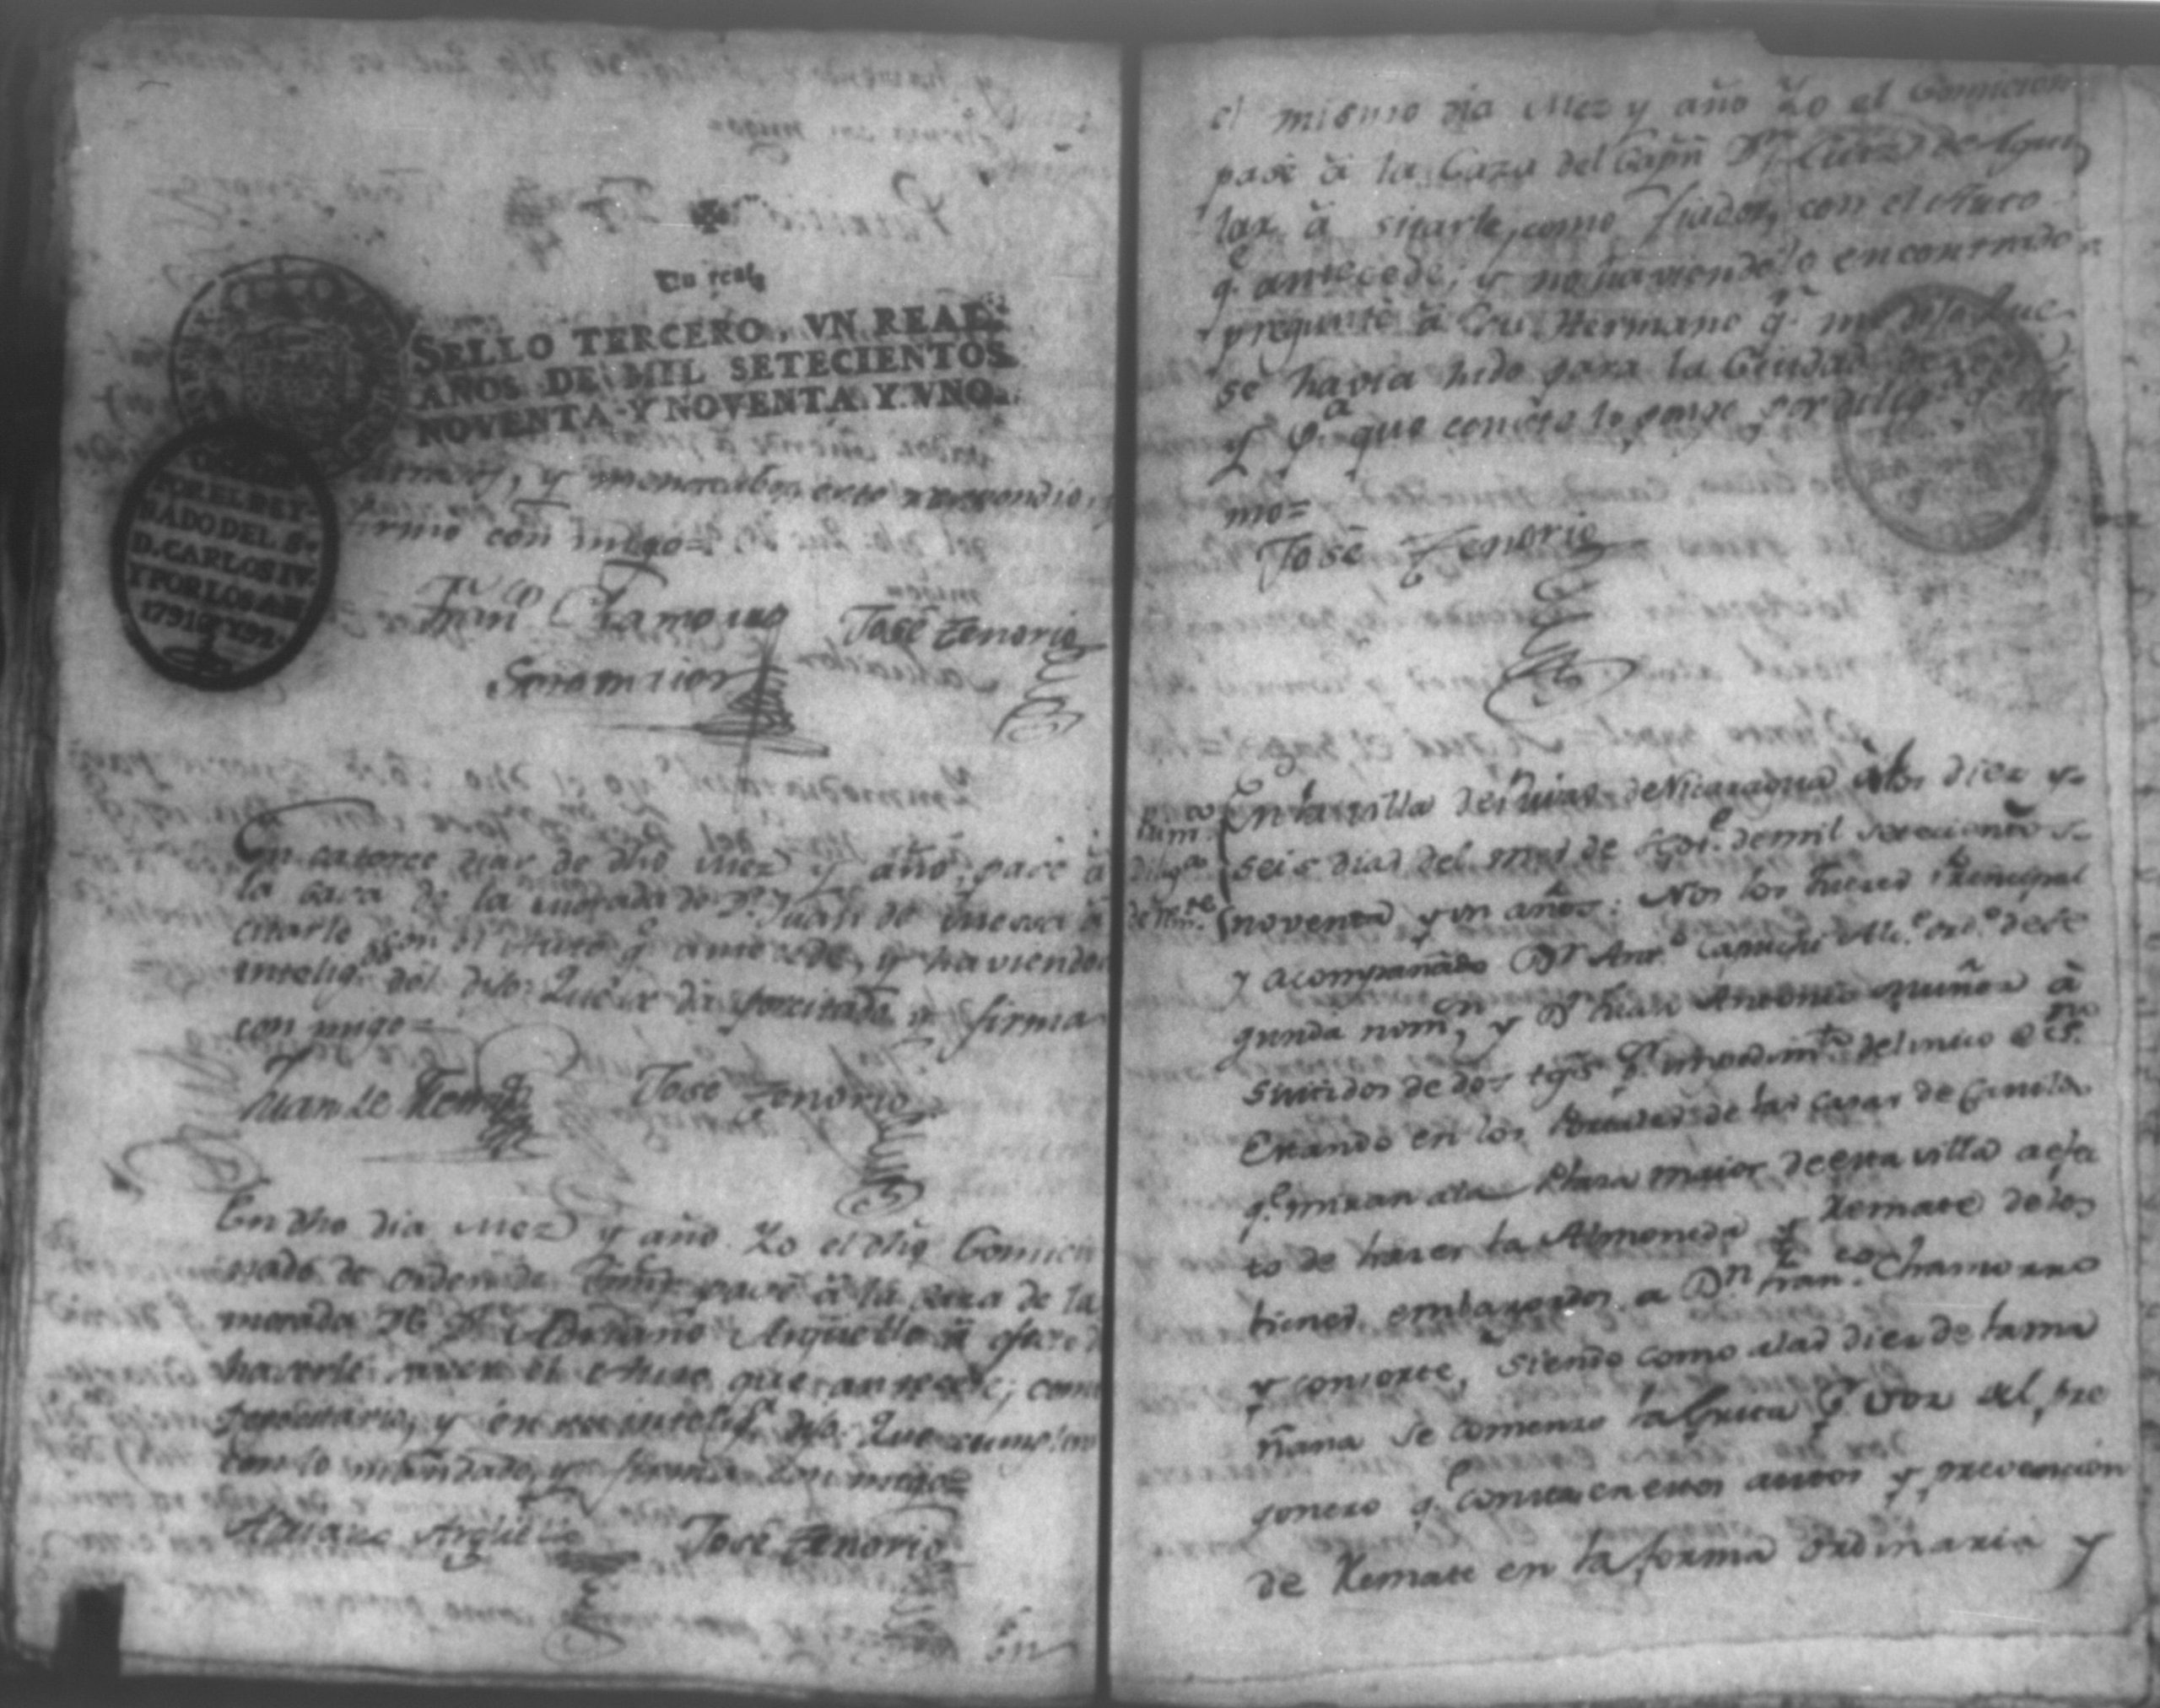 Un real
SELLO TERCERO, VN REAL
AÑOS DE MIL SETECIENTOS
NOVENTA Y NOVENTA Y VNO.
POR EL REY-
NADO DEL Sr
D. CARLOS IV.
Y POR LOS AÑ
1791 y 792.
y menoscabos esto respondio, y
firmo con migo=
Franco Chamorro José Tenorio
Sotomaior
En catorce dias de dho Mez y año, pasé à
la casa de la morada de Dn Juan de à
citarle con el Auto q antecede, y haviendo
intelig.do del dijo: Que se dà por citado y firma
con migo=
Juan de José Tenorio
En dho dia Mez y año Yo el dho Comicio
nado de orden de pasé à la casa de la
morada de Dn Adriano Arguello à efecto
haverle saver el Auto que antecede; como
y en su intelig.a dijo: Que cumplira
con lo mandado, y firma con migo=
Adriano Arguello José Tenorio
En
el mismo dia Mez y año Yo el Comicion
pasé à la Caza del Capn Dn de Agui
lar à sitarle, como Fiador, con el Auto
q.e antecede; y no haviendolo encontrado
pregunté à su Hermano q.e me dijo que
se havia hido para la Ciudad de
y p.a que conste lo pongo por dilig.a y fir
mo=
José Tenorio
En la villa de Nicaragua a los diez y
seis dias del mes de de mil setecientos
noventa y un años: Nos los Jueces Principal
y acompañado Dn Ant.o Capuchi Alc.e ord.o de se
gunda nomn, y Dn Juan Antonio Muñoz à
sistidos de dos tgos p.r impedim.to del unico
Estando en los Portales de las casas de Cavildo
q.e miran a la Plaza maior de esta villa a efec
to de hacer la Almoneda y Remate de los
bienes embargados a Dn Fran.co Chamorro
y consorte, siendo como a las diez de la ma
ñana se comenzo la p.r voz del pre
gonero q.e consta en estos autos y prevencion
de Remate en la forma ordinaria y